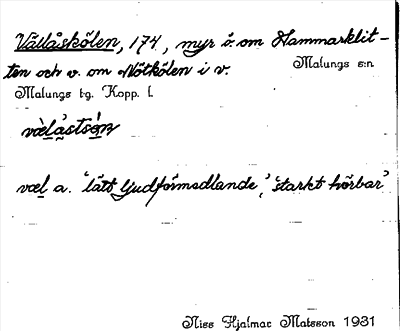 Vällåskölen, 174, myr ö. om Hammarklit-
ten och v. om Nötkölen i v. Malungs s:n
Malungs tg. Kopp. l.
væl a. 'lätt ljudförmedlande', 'starkt hörbar'
Niss Hjalmar Matsson 1931